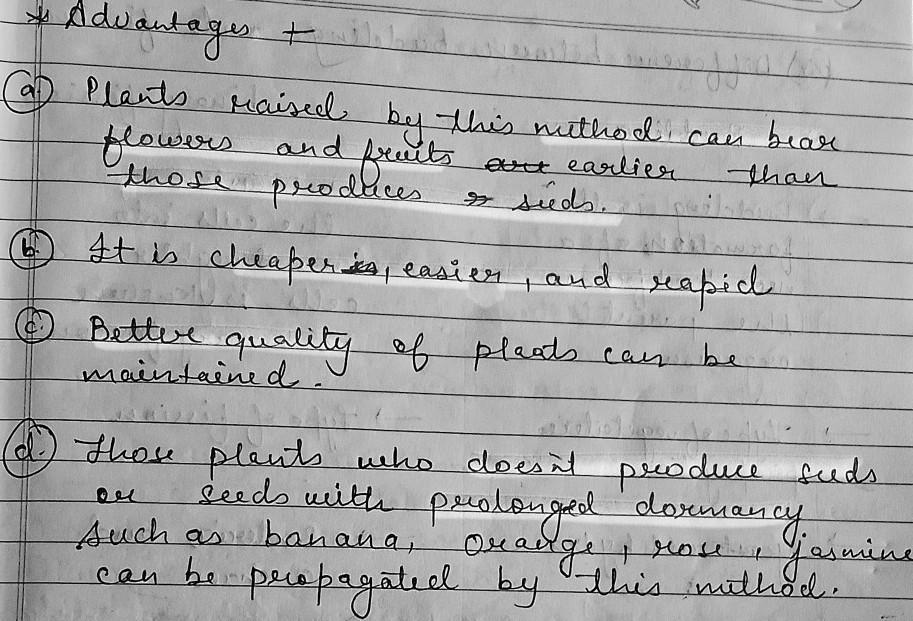 * Advantages +
(a) Plants raised by this method can bear
flowers and fruits earlier than
those produces seeds.
(b) It is cheaper, easier, and rapid
(c) Better quality of plants can be
maintained.
(d) Those plants who doesn't produce seeds
or seeds with prolonged dormancy
such as banana, orange, rose, jasmine
can be propagated by this method.